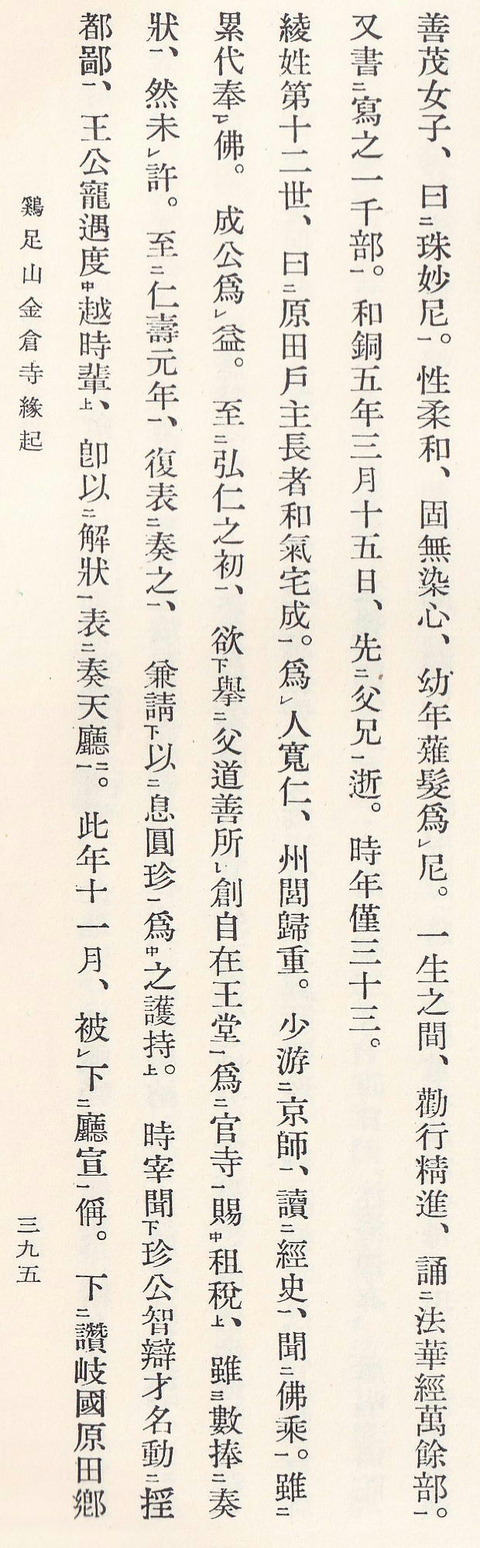 善茂女子、曰㆓珠妙尼㆒。性柔和、固無染心、幼年薙髮爲㆑尼。一生之間、勸行精進、誦㆓法華經萬餘部㆒。
又書㆓寫之一千部㆒。和銅五年三月十五日、先㆓父兄㆒逝。時年僅三十三。
綾姓第十二世、曰㆓原田戶主長者和氣宅成㆒。爲㆑人寬仁、州閭歸重。少游㆓京師㆒、讀㆓經史㆒、聞㆓佛乘㆒。雖㆘
累代奉㆑佛。成公爲㆑益。至㆓弘仁之初㆒、欲㆘擧㆘父道善所㆑創自在王堂㆒爲㆓官寺㆒賜㆗租稅㆖、雖㆔數捧㆓奏
狀㆒、然未㆑許。至㆓仁壽元年㆒、復表㆓奏之㆒、兼請㆘以㆓息圓珍㆒爲㆗之護持㆖。時宰聞㆘珍公智辯才名動㆓
都鄙㆒、王公寵遇度㆗越時輩㆖、卽以㆓解狀㆒表㆓奏天廳㆒㆓。此年十一月、被㆑下㆓廳宣㆒偁。下㆓讚岐國原田鄉
鷄足山金倉寺緣起
三九五